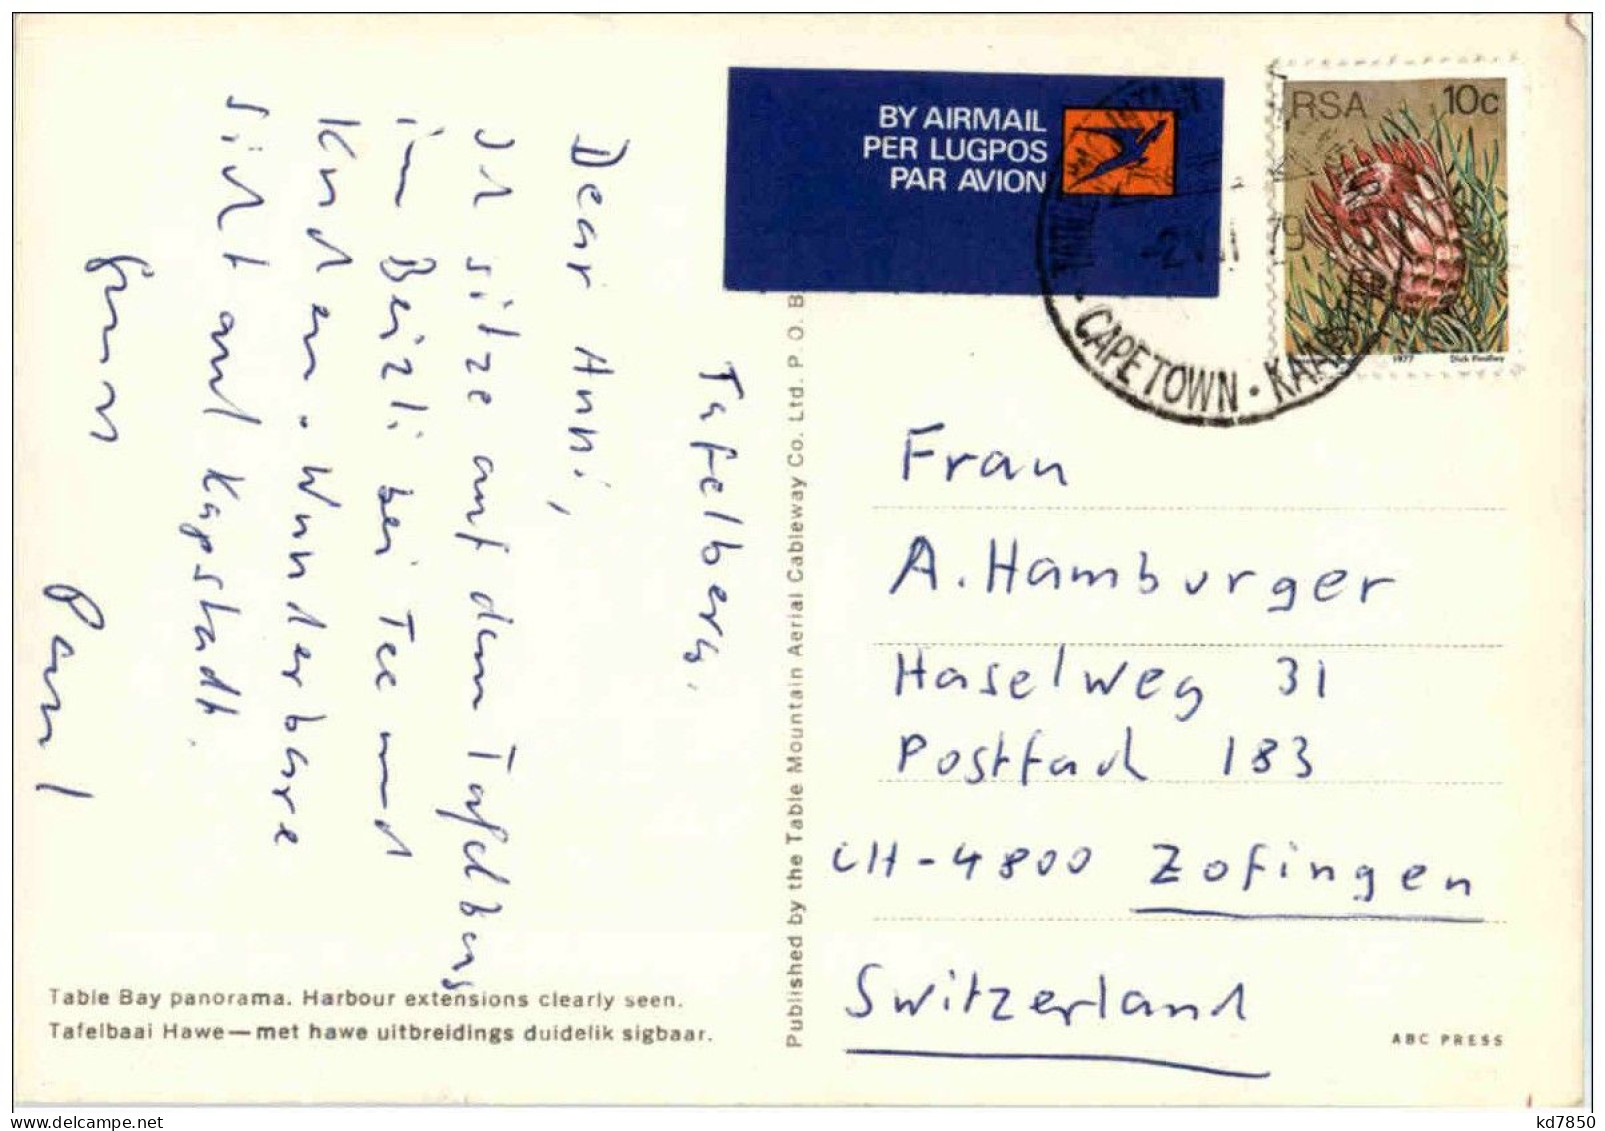 Tafelberg.
Dear Anni,
Ich sitze auf dem Tafelberg
im Beizli bei Tee und
Kuchen. Wunderbare
Sicht auf Kapstadt.
Paul
Table Bay panorama. Harbour extensions clearly seen.
Tafelbaai Hawe—met hawe uitbreidings duidelik sigbaar.
Published by the Table Mountain Aerial Cableway Co. Ltd. P. O. B
BY AIRMAIL
PER LUGPOS
PAR AVION
RSA 10c
1977 Dick Findlay
CAPE TOWN · KAAPSTAD
Frau
A. Hamburger
Haselweg 31
Postfach 183
CH-4800 Zofingen
Switzerland
ABC PRESS
kd7850